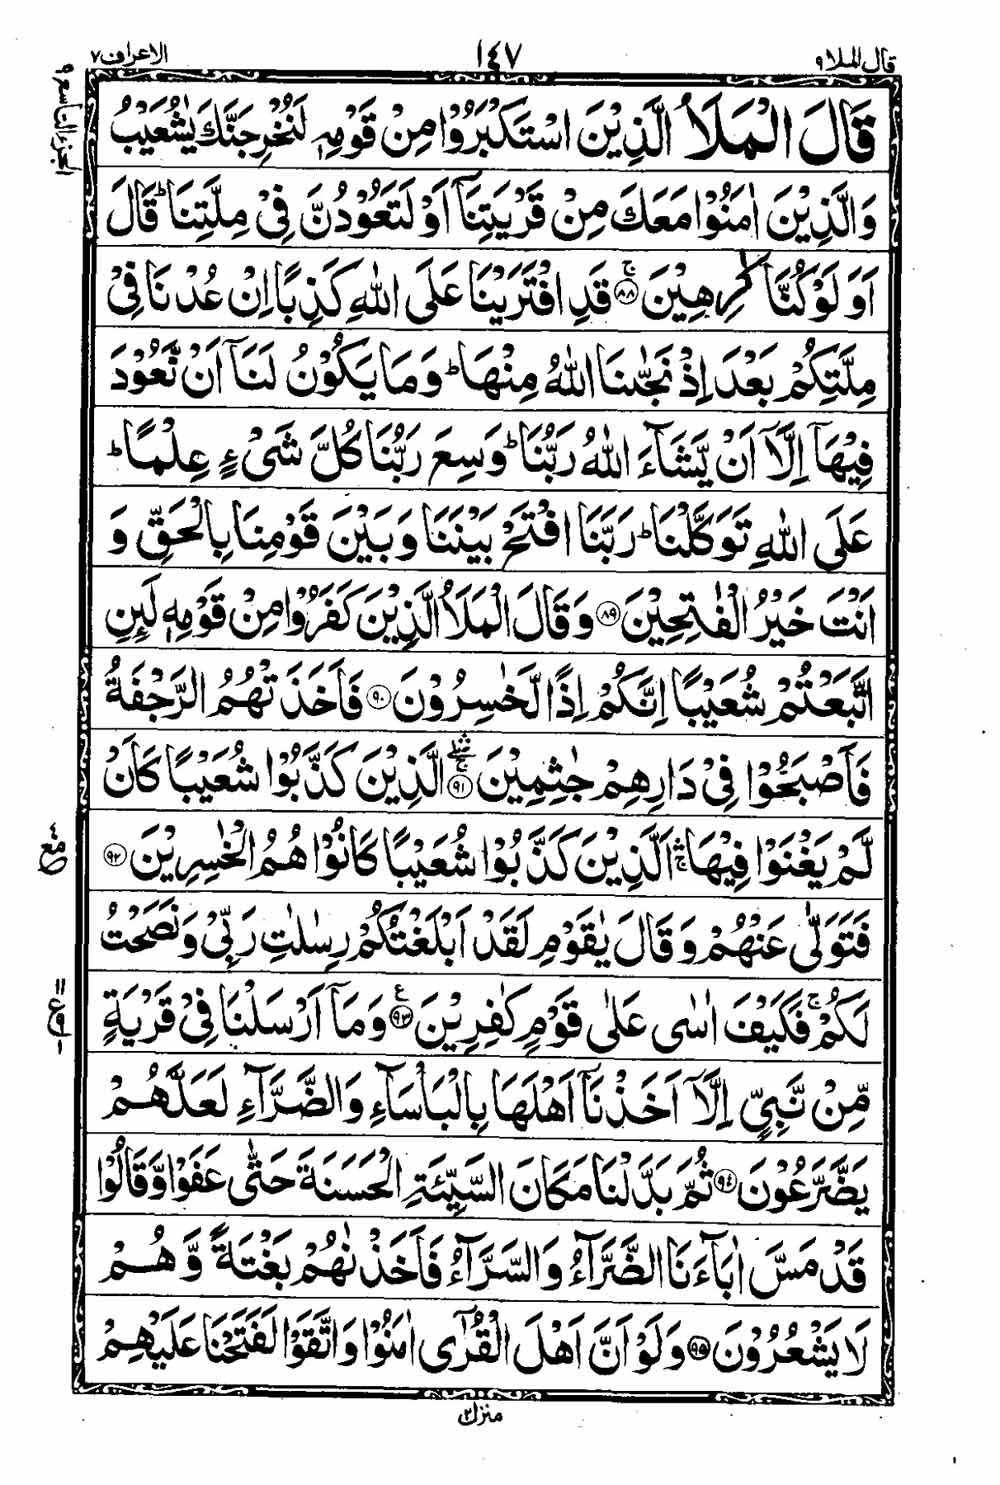 قال الملا ٩ ١٤٧ الاعراف ٧
الجزء التاسع ٩
قَالَ الْمَلَاُ الَّذِيْنَ اسْتَكْبَرُوْا مِنْ قَوْمِهٖ لَنُخْرِجَنَّكَ يٰشُعَيْبُ
وَالَّذِيْنَ اٰمَنُوْا مَعَكَ مِنْ قَرْيَتِنَآ اَوْ لَتَعُوْدُنَّ فِيْ مِلَّتِنَا ؕ قَالَ
اَوَلَوْ كُنَّا كٰرِهِيْنَ ۚ﴿۸۸﴾ قَدِ افْتَرَيْنَا عَلَى اللّٰهِ كَذِبًا اِنْ عُدْنَا فِيْ
مِلَّتِكُمْ بَعْدَ اِذْ نَجّٰىنَا اللّٰهُ مِنْهَا ؕ وَمَا يَكُوْنُ لَنَآ اَنْ نَّعُوْدَ
فِيْهَآ اِلَّآ اَنْ يَّشَآءَ اللّٰهُ رَبُّنَا ؕ وَسِعَ رَبُّنَا كُلَّ شَيْءٍ عِلْمًا ؕ
عَلَى اللّٰهِ تَوَكَّلْنَا ؕ رَبَّنَا افْتَحْ بَيْنَنَا وَبَيْنَ قَوْمِنَا بِالْحَقِّ وَ
اَنْتَ خَيْرُ الْفٰتِحِيْنَ ﴿۸۹﴾ وَقَالَ الْمَلَاُ الَّذِيْنَ كَفَرُوْا مِنْ قَوْمِهٖ لَئِنِ
اتَّبَعْتُمْ شُعَيْبًا اِنَّكُمْ اِذًا لَّخٰسِرُوْنَ ﴿۹۰﴾ فَاَخَذَتْهُمُ الرَّجْفَةُ
فَاَصْبَحُوْا فِيْ دَارِهِمْ جٰثِمِيْنَ ۚۖۛ﴿۹۱﴾ الَّذِيْنَ كَذَّبُوْا شُعَيْبًا كَاَنْ
لَّمْ يَغْنَوْا فِيْهَا ۚۛ اَلَّذِيْنَ كَذَّبُوْا شُعَيْبًا كَانُوْا هُمُ الْخٰسِرِيْنَ ﴿۹۲﴾
فَتَوَلّٰى عَنْهُمْ وَقَالَ يٰقَوْمِ لَقَدْ اَبْلَغْتُكُمْ رِسٰلٰتِ رَبِّيْ وَنَصَحْتُ
لَكُمْ ۚ فَكَيْفَ اٰسٰى عَلٰى قَوْمٍ كٰفِرِيْنَ ﴿۹۳﴾ؑ وَمَآ اَرْسَلْنَا فِيْ قَرْيَةٍ
مِّنْ نَّبِيٍّ اِلَّآ اَخَذْنَآ اَهْلَهَا بِالْبَاْسَآءِ وَالضَّرَّآءِ لَعَلَّهُمْ
يَضَّرَّعُوْنَ ﴿۹۴﴾ ثُمَّ بَدَّلْنَا مَكَانَ السَّيِّئَةِ الْحَسَنَةَ حَتّٰى عَفَوْا وَّقَالُوْا
قَدْ مَسَّ اٰبَآءَنَا الضَّرَّآءُ وَالسَّرَّآءُ فَاَخَذْنٰهُمْ بَغْتَةً وَّهُمْ
لَا يَشْعُرُوْنَ ﴿۹۵﴾ وَلَوْ اَنَّ اَهْلَ الْقُرٰٓى اٰمَنُوْا وَاتَّقَوْا لَفَتَحْنَا عَلَيْهِمْ
منزل ٢